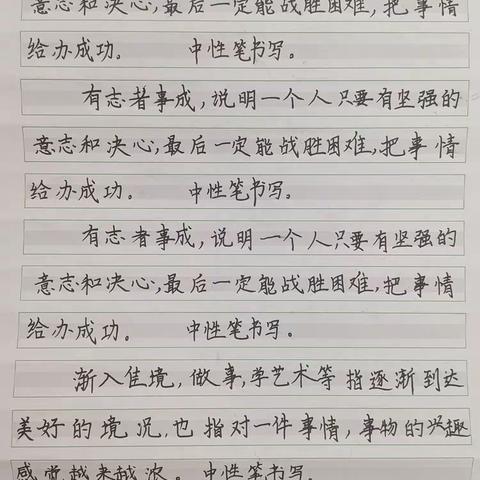 意志和决心,最后一定能战胜困难,把事情
给办成功。 中性笔书写。
有志者事成,说明一个人只要有坚强的
意志和决心,最后一定能战胜困难,把事情
给办成功。 中性笔书写。
有志者事成,说明一个人只要有坚强的
意志和决心,最后一定能战胜困难,把事情
给办成功。 中性笔书写。
渐入佳境,做事,学艺术等指逐渐到达
美好的境况,也指对一件事情,事物的兴趣
感觉越来越浓。中性笔书写.